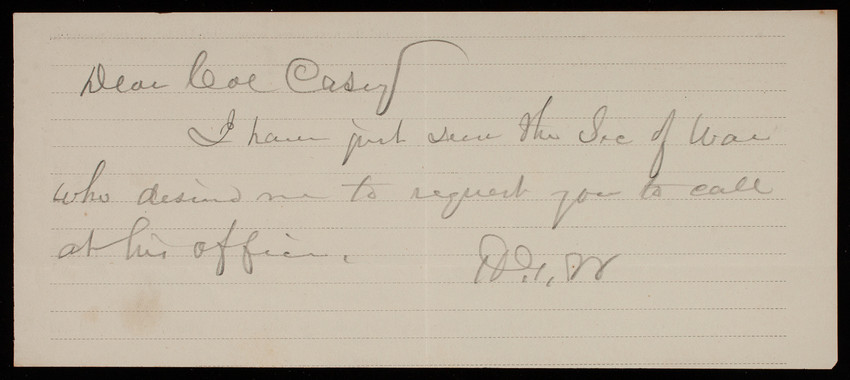 Dear Col Casey
I have just seen the Sec of War
who desired me to request you to call
at his office.